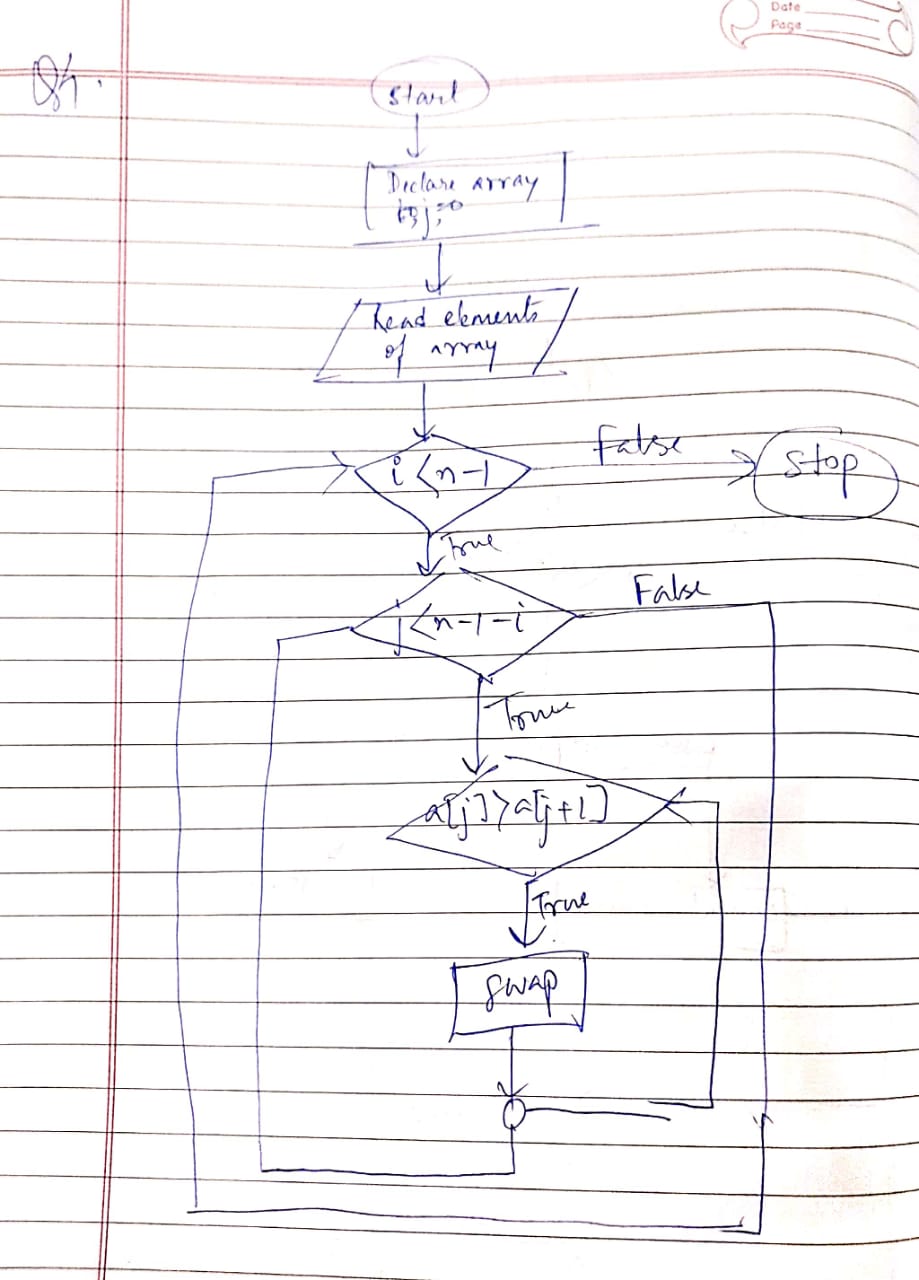 Date
Page
Q4.
Start
Declare array
j=0
Read elements
of array
i<n-1
False
Stop
True
j<n-1-i
False
True
a[j]>a[j+1]
True
Swap